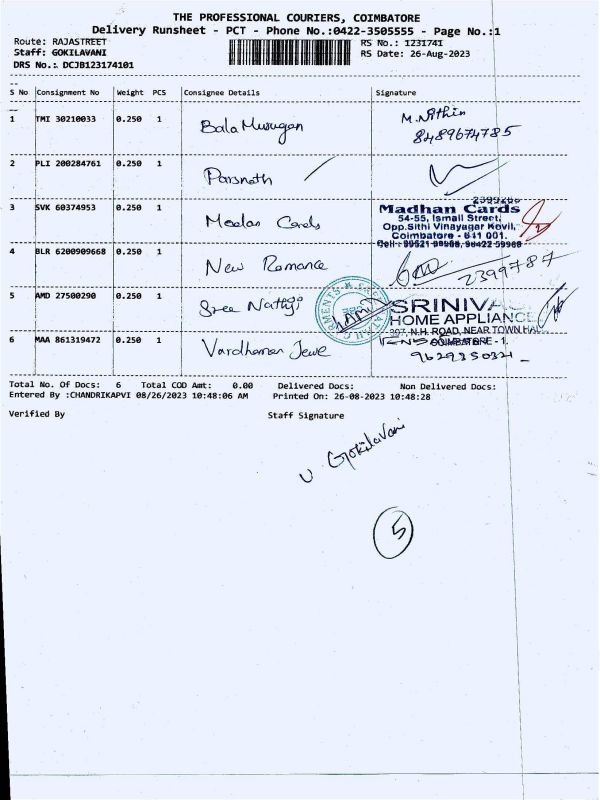 THE PROFESSIONAL COURIERS, COIMBATORE
Delivery Runsheet - PCT - Phone No.:0422-3505555 - Page No.:1
Route: RAJASTREET RS No.: 1231741
Staff: GOKILAVANI RS Date: 26-Aug-2023
DRS No.: DCJB123174101
S No Consignment No Weight PCS Consignee Details Signature
1 TMI 30210033 0.250 1 Bala Murugan M. Nithin
8489674785
2 PLI 200284761 0.250 1 Parsnath
3 SVK 60374953 0.250 1 Meelan Cards
Madhan Cards
54-55, Ismail Street,
Opp.Sithi Vinayagar Kovil,
Coimbatore - 641 001.
4 BLR 6200909668 0.250 1 New Romance 2399787
5 AMD 27500290 0.250 1 Sree Nathji
SRINIVA
HOME APPLIANCE
397, N.H. ROAD, NEAR TOWN HAL
COIMBATORE - 1.
6 MAA 861319472 0.250 1 Vardhaman Jewe
Total No. Of Docs: 6 Total COD Amt: 0.00 Delivered Docs: Non Delivered Docs:
Entered By :CHANDRIKAPVI 08/26/2023 10:48:06 AM Printed On: 26-08-2023 10:48:28
Verified By Staff Signature
U Gokilavani
5